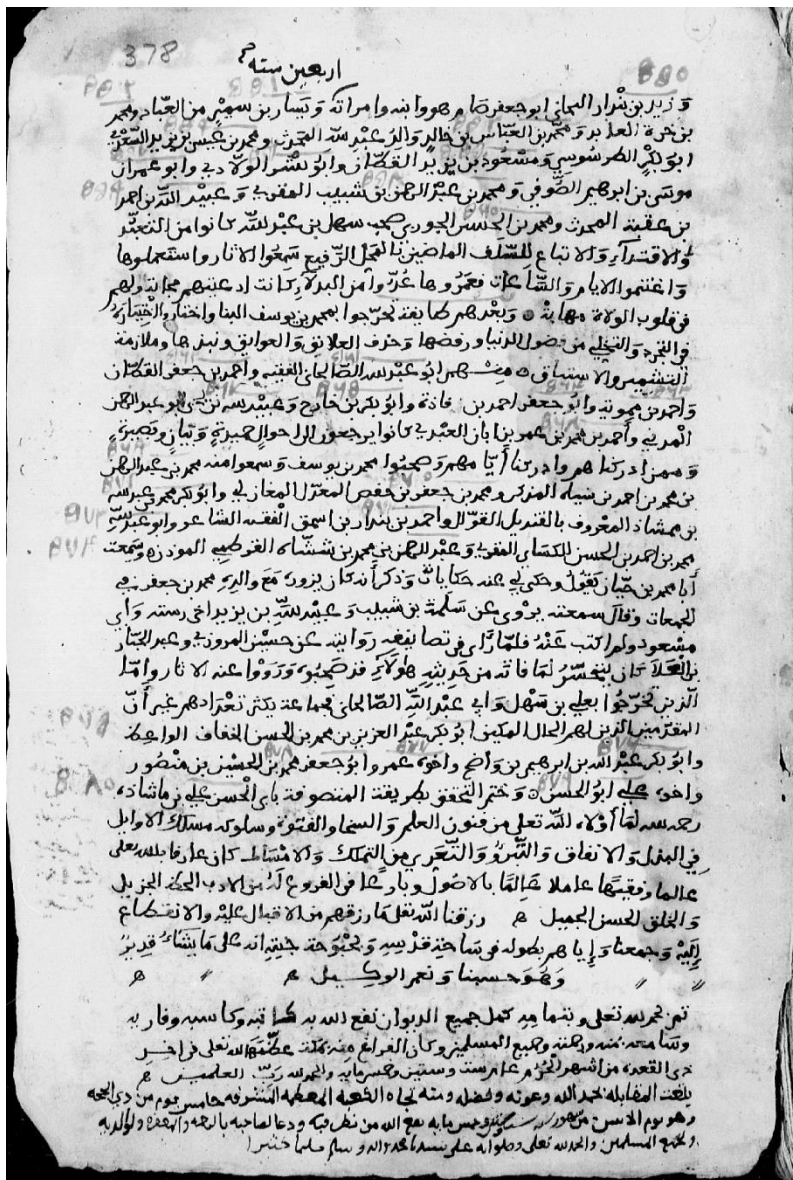 378
اربعين سنة
وزيد بن بندار النجاني ابو جعفر صام هو وابنه وامراته ويسار بن سمير من العباد ومحمد
بن العابد ومحمد بن العباس بن خالد والد عبد الله المحدث ومحمد بن عيسى بن يزيد السعدي
ابو بكر الطرسوسي ومسعود بن يزيد القطان وابو بشر وابو عمران
موسى بن ابرهيم الصوفي ومحمد بن عبد الرحمن بن شبيب المقري وعبيد الله بن احمد
بن عقبة المحدث ومحمد بن الحسن الجوربي صحب سهل بن عبد الله كانوا من التعبد
والاقتداء والاتباع للسلف الماضين بالمحل الرفيع سمعوا الاثار واستعملوها
واغتنموا الايام والساعات فعمروها من البدلاء كانت ادعيتهم مجابة ولهم
في قلوب الولاة مهابة وبعدهم طايفة تخرجوا بمحمد بن يوسف البنا واختاروا اختياره
في التجرد والتخلي من فضول الدنيا ورفضها وحذف العلائق والعوايق ونبذها وملازمة
التشمير والاستباق منهم ابو عبد الله الصالحاني الفقيه واحمد بن جعفر القطان
واحمد بن وابو جعفر احمد بن فاذة وابو بكر بن خارج وعبيد الله بن يحيى ابو عبد الرحمن
المديني واحمد بن محمد بن عمر بن ابان العبدي كانوا يرجعون الى احوال حميدة وتبيان وبصيرة
وممن ادركناهم وادركنا ايامهم وصحبوا محمد بن يوسف وسمعوا منه محمد بن عبد الرحمن
بن محمد بن احمد بن سياه المذكر ومحمد بن جعفر بن حفص المعدل المغازلي وابو بكر محمد بن عبد الله
بن ممشاذ المعروف بالقنديل القوال واحمد بن بندار بن اسحق الفقيه الشاعر وابو عبد الله
محمد بن احمد بن الحسن الكسائي المقري وعبد الرحمن بن محمد بن المؤذن وسمعت
ابا محمد بن حيان يقول وحكى لي عنه حكايات وذكر انه كان يزوره مع والده محمد بن جعفر في
الجمعات وقال سمعته يروي عن سلمة بن شبيب وعبد الله بن يزيد اخي رسته وابي
مسعود ولم اكتب عنه فلما راى في تصانيفه روايته عن حسين المروزي وعبد الجبار
بن العلاء كان يتحسر لما فاته من حديثه هؤلاء قد صحبوه ورووا عنه الاثار واما
الذين تخرجوا بعلي بن سهل وابي عبد الله الصالحاني فجماعة يكثر تعدادهم غير ان
المقدمين الذين لهم الحال المكين ابو بكر عبد العزيز بن محمد بن الحسن الخفاف الواعظ
وابو بكر عبد الله بن ابرهيم بن واضح واخوه عمر وابو جعفر محمد بن الحسين بن منصور
واخوه علي ابو الحسن وختم التحقق بطريقة المتصوفة بابي الحسن علي بن ماشاذه
رحمه الله لما اولاه الله تعالى من فنون العلم والسخاء والفتوة وسلوكه مسلك الاوايل
في البذل والانفاق والتبرؤ والتعري من التملك والامساك كان عارفا بالله تعالى
عالما وفقيها عاملا عالما بالاصول وبارعا في الفروع له من الادب الحظ الجزيل
والخلق الحسن الجميل رزقنا الله تعالى ما رزقهم من الاقبال عليه والانقطاع
اليه وجمعنا واياهم بطوله في ساحة قدسه وبحبوحة جنته انه على ما يشاء قدير
وهو حسبنا ونعم الوكيل
تم بحمد الله تعالى وبتمامه كمل جميع الديوان نفع الله به كاتبه وكاسبه وقاريه
وسامعه بمنه ورحمته وجميع المسلمين وكان الفراغ منه بمكة الله تعالى في اخر
ذي القعدة من اشهر الحرم عام ست وستين وخمس مايه والحمد لله رب العلمين
بلغت المقابلة بحمد الله وعونه وفضله ومنه تجاه الكعبة المعظمة المشرفة خامس يوم من ذي الحجة
وهو يوم الاثنين من شهور سنة ست وستين وخمس مايه نفع الله من نظر فيه ودعا لصاحبه بالرحمة والمغفرة ولوالديه
ولجميع المسلمين والحمد لله تعالى وصلواته على سيدنا محمد واله وسلم تسليما كثيرا